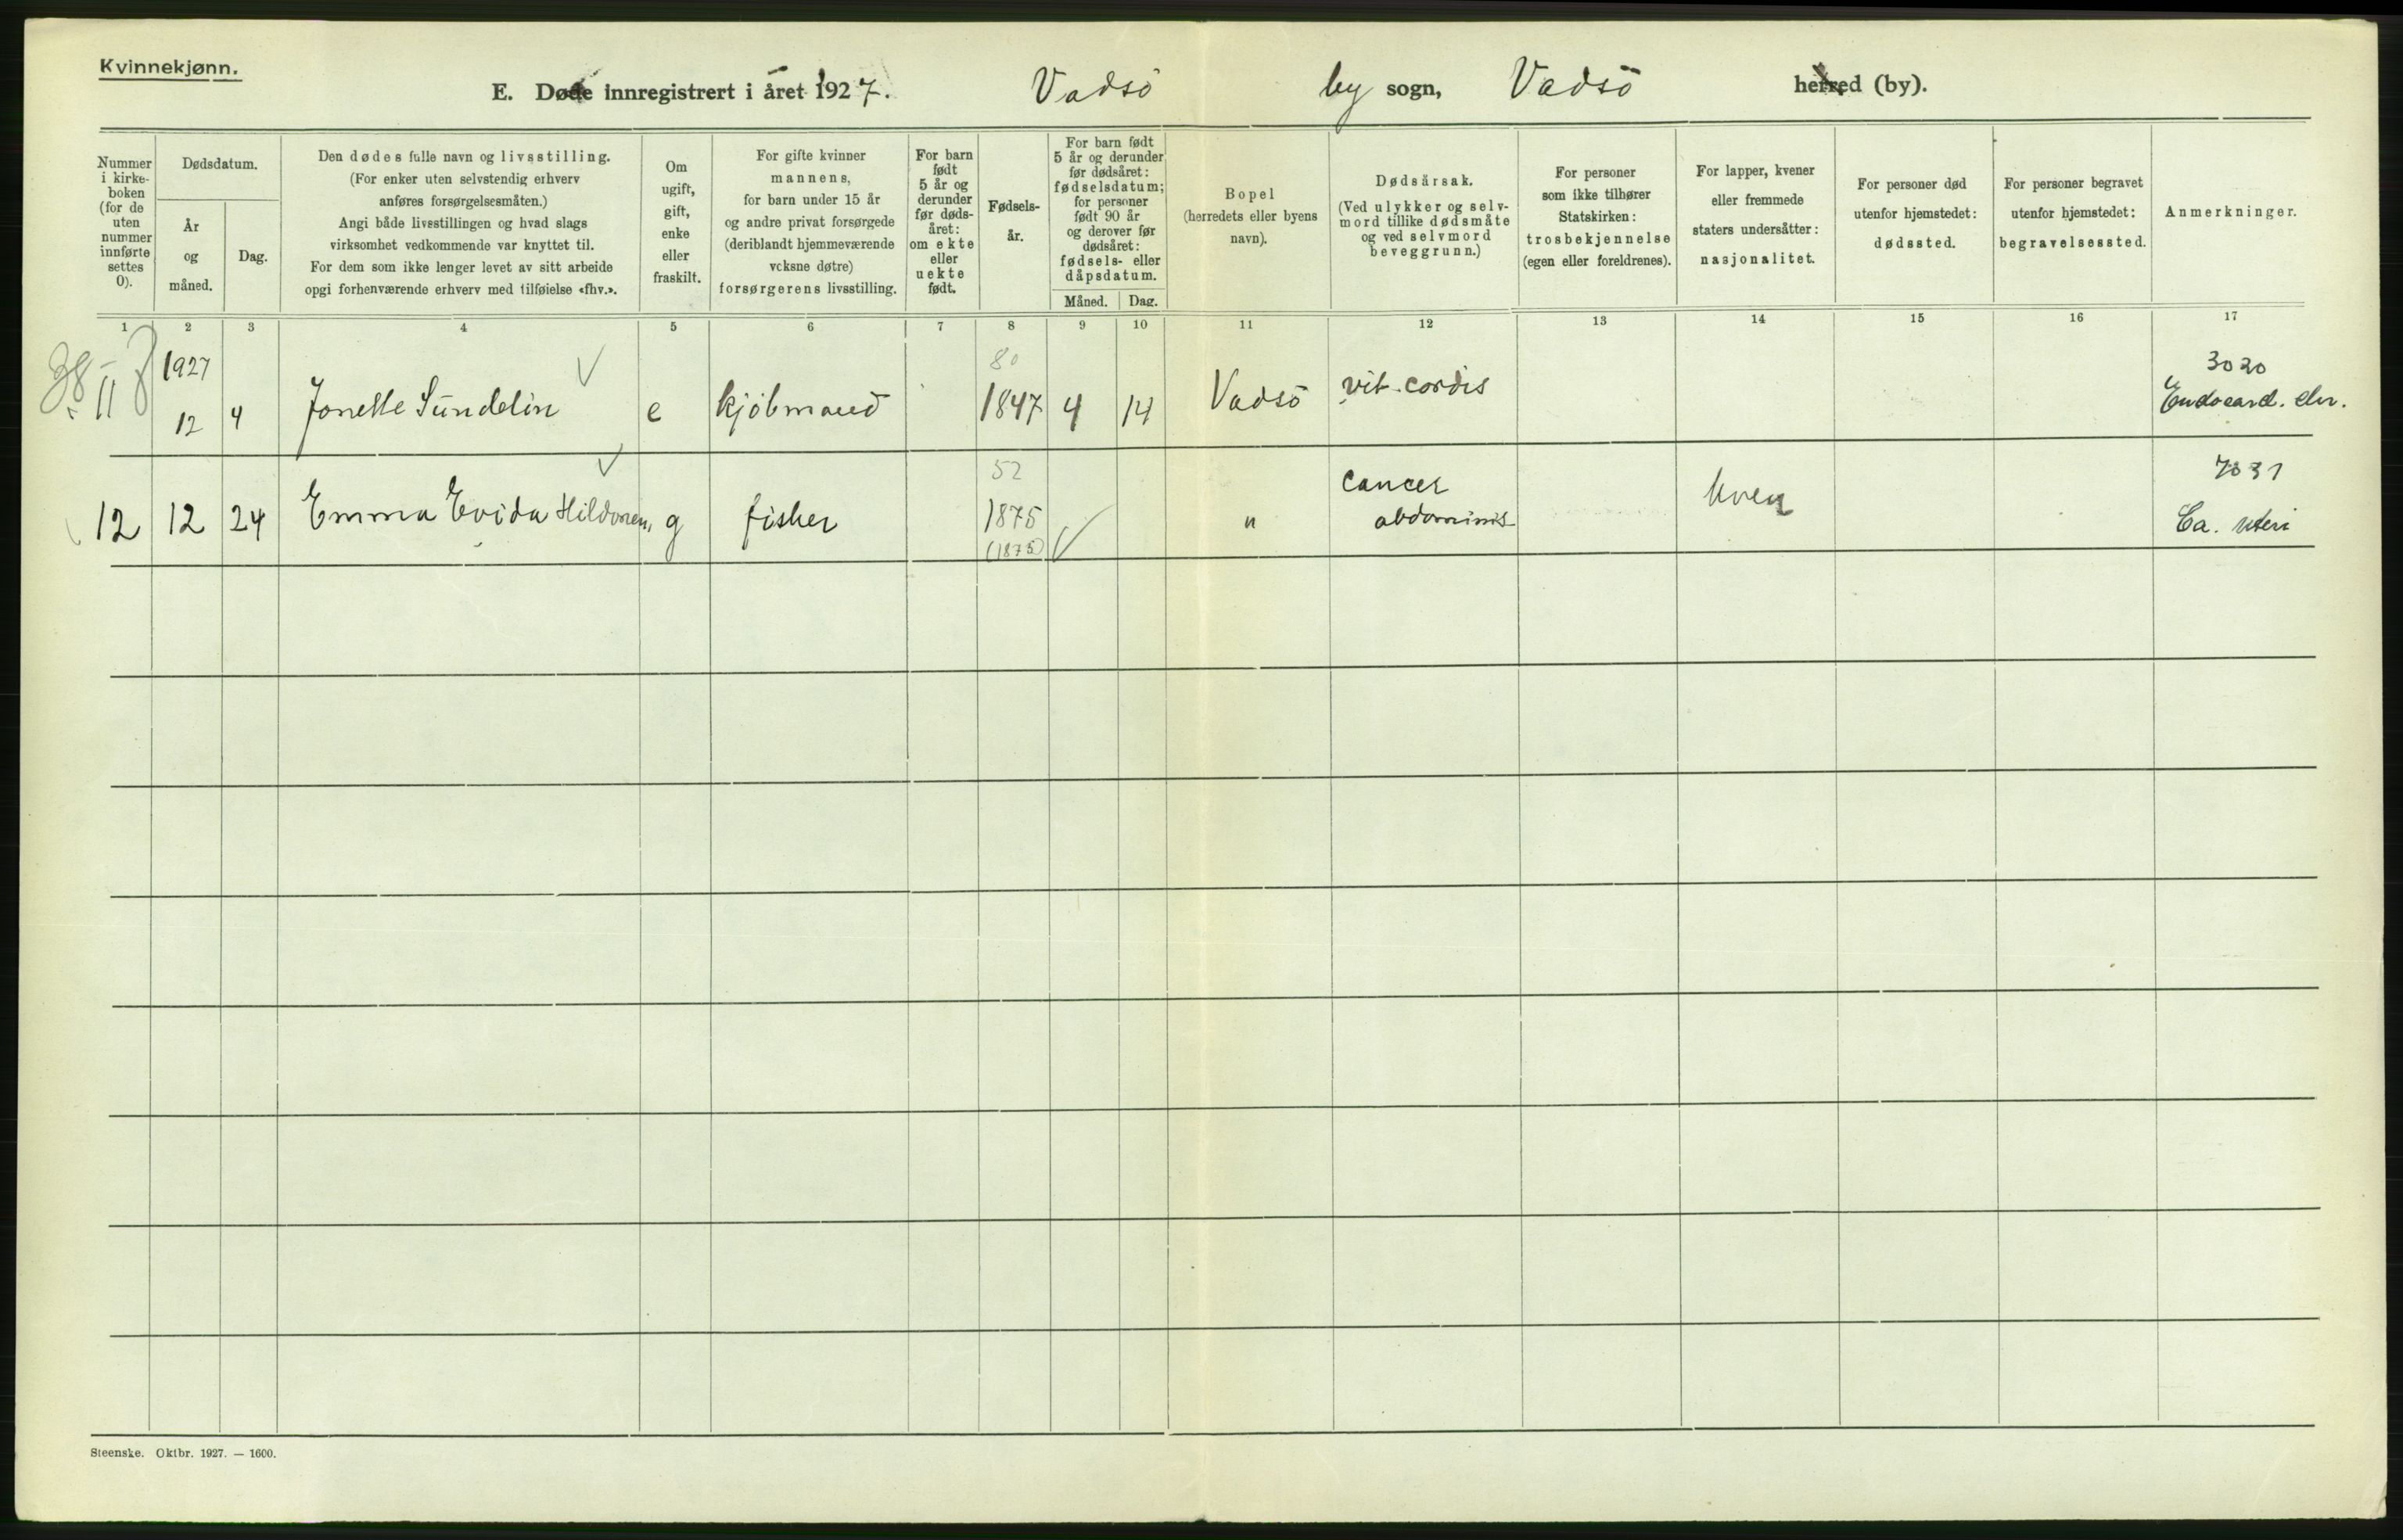 Kvinnekjønn.
E. Døde innregistrert i året 1927. Vadsö by sogn, Vadsö herred (by).
Nummer i kirkeboken (for de uten nummer innførte settes 0).
Dødsdatum.
År og måned.
Dag.
Den dødes fulle navn og livsstilling.
(For enker uten selvstendig erhverv
anføres forsørgelsesmåten.)
Angi både livsstillingen og hvad slags
virksomhet vedkommende var knyttet til.
For dem som ikke lenger levet av sitt arbeide
opgi forhenværende erhverv med tilføielse «fhv.».
Om
ugift,
gift,
enke
eller
fraskilt.
For gifte kvinner
mannens,
for barn under 15 år
og andre privat forsørgede
(deriblandt hjemmeværende
vcksne døtre)
forsørgerens livsstilling.
For barn
født
5 år og
derunder
før døds-
året:
om ekte
eller
uekte
født.
Fødsels-
år.
For barn født
5 år og derunder
før dødsåret:
fødselsdatum;
for personer
født 90 år
og derover før
dødsåret:
fødsels- eller
dåpsdatum.
Måned. Dag.
Bopel
(herredets eller byens
navn).
Dødsårsak.
(Ved ulykker og selv-
mord tillike dødsmåte
og ved selvmord
beveggrunn.)
For personer
som ikke tilhører
Statskirken:
trosbekjennelse
(egen eller foreldrenes).
For lapper, kvener
eller fremmede
staters undersåtter:
nasjonalitet.
For personer død
utenfor hjemstedet:
dødssted.
For personer begravet
utenfor hjemstedet:
begravelsessted.
Anmerkninger.
1 2 3 4 5 6 7 8 9 10 11 12 13 14 15 16 17
1927 80 3020
11 12 4 Jonette Sundelin e kjöbmand 1847 4 14 Vadsö vit. cordis Endocard. chr.
52 7031
12 12 24 Emma Evida Hildonen, g fisker 1875 " cancer abdominis kven Ca. uteri
(1875)
Steenske. Oktbr. 1927. — 1600.